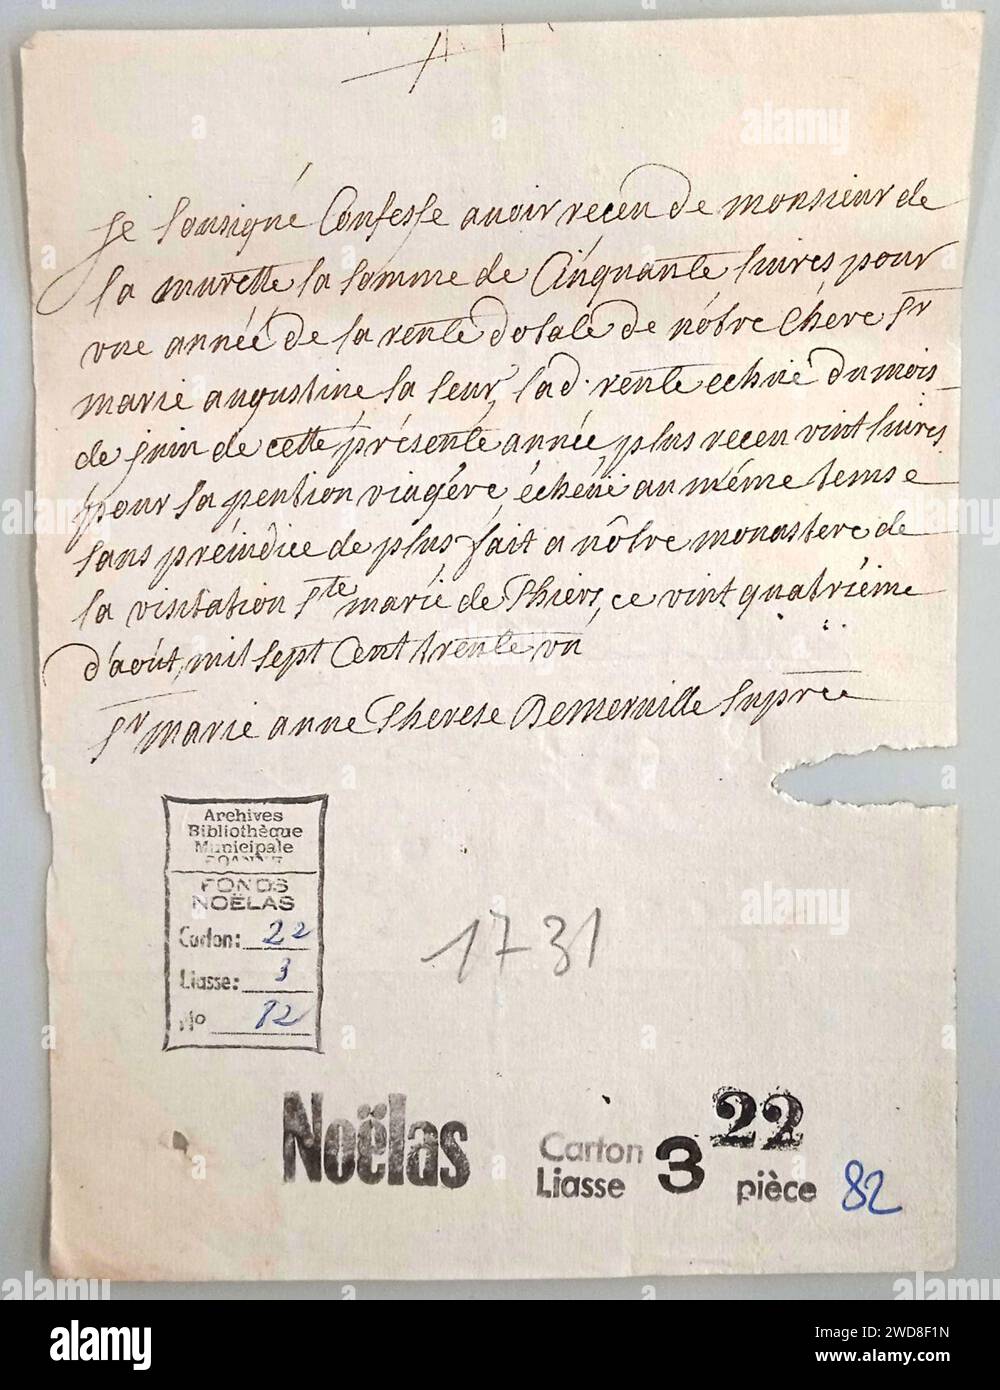 je sousigné Confesse avoir receu de monsieur de
la murette la somme de Cinquante livres pour
une année de la rente dotale de nôtre Chere Sr
marie augustine la sœur, lad. rente echüe du mois
de juin de cette présente année, plus receu vint livres
pour sa pention viagére, écheüe au méme temse
sans préiudice de plus fait a nôtre monastere de
la visitation Ste marie de Thiers, ce vint quatriéme
d'août, mil sept Cent trente un
Sr marie anne Therese Demerville Supree
Archives
Bibliothèque
Municipale
ROANNE
FONDS
NOËLAS
Carton: 22
Liasse: 3
No 82
1731
Noëlas
Carton 22
Liasse 3 pièce 82
alamy
Image ID: 2WD8F1N
www.alamy.com